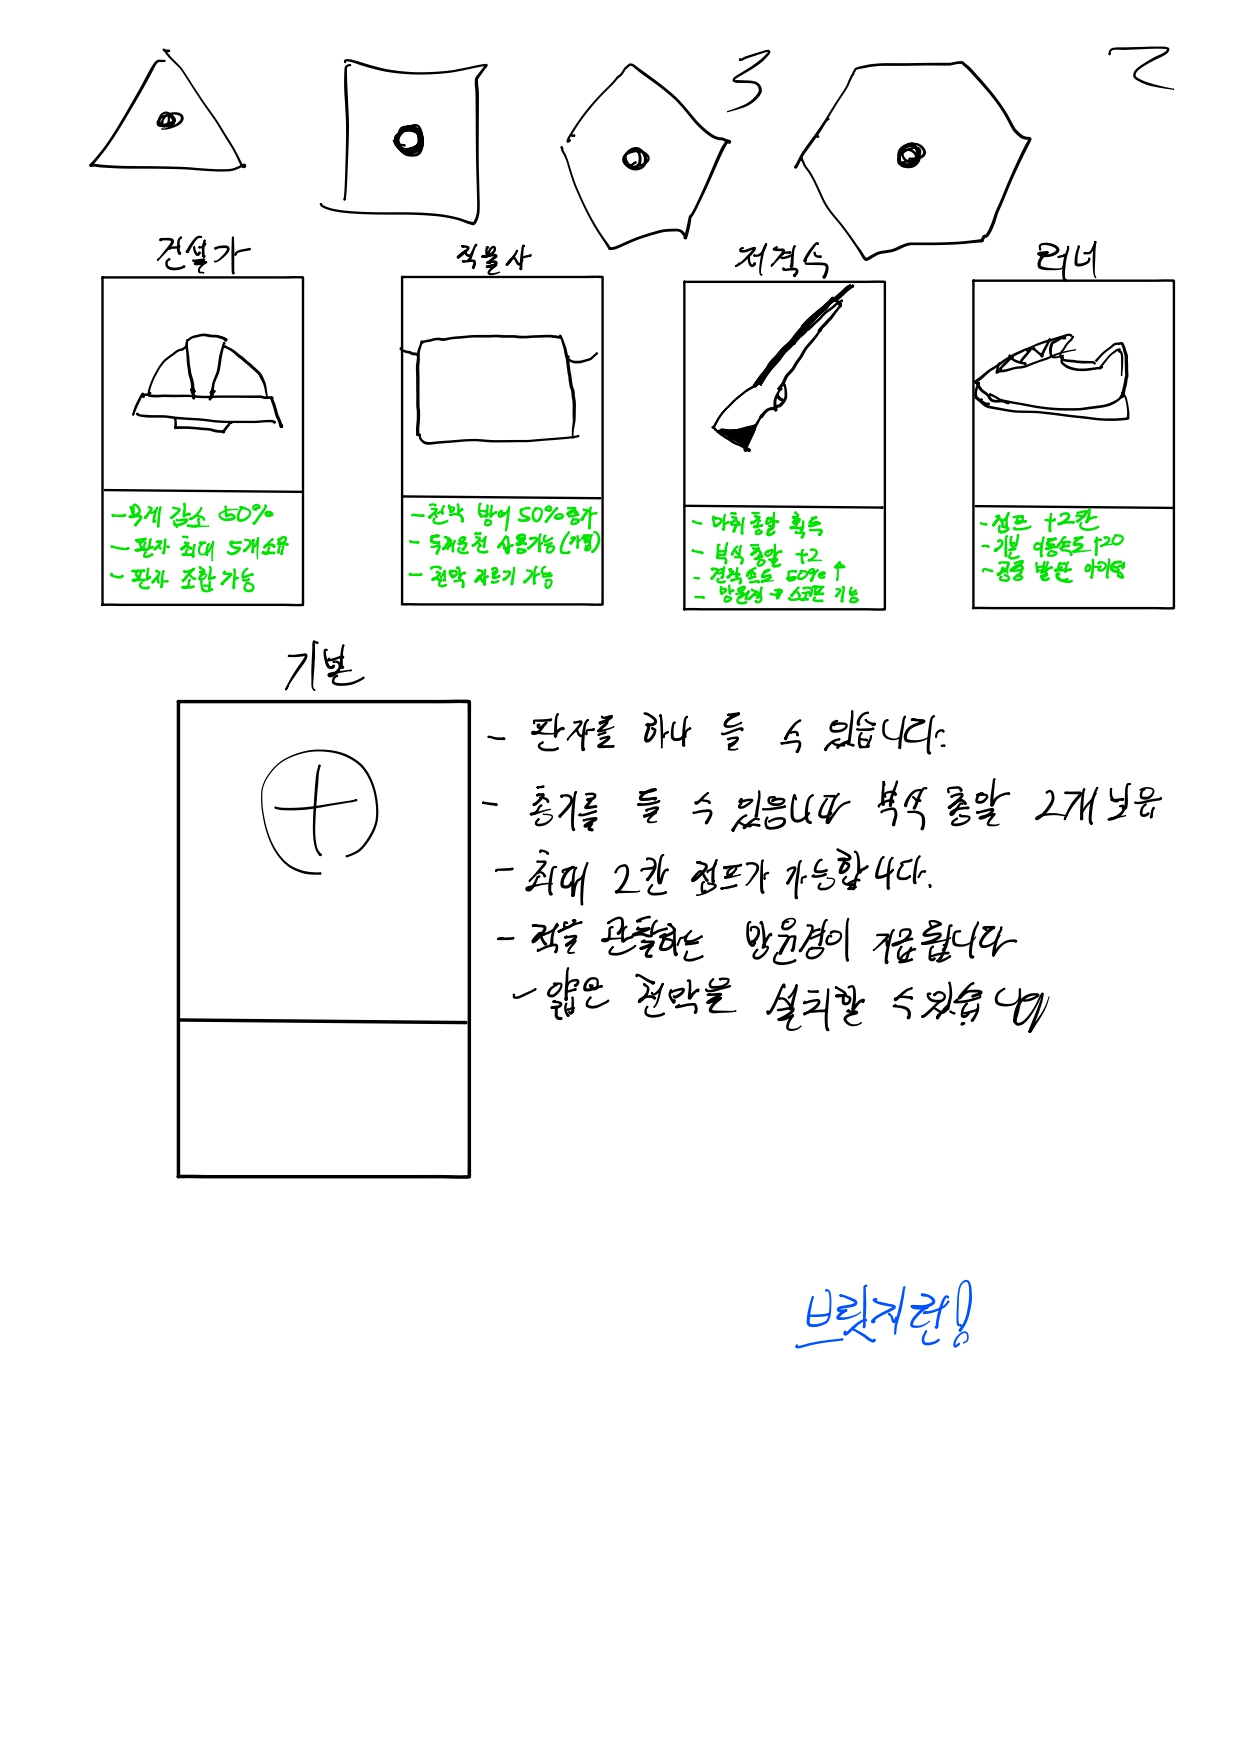 3
건설가
직물사
저격수
러너
- 무게 감소 50%
- 판자 최대 5개 소유
- 판자 조합 가능
- 천막 방어 50% 증가
- 두꺼운 천 사용가능 (가림)
- 천막 자르기 가능
- 마취 총알 획득
- 부식 총알 +2
- 견착 속도 50% ↑
- 망원경 → 스코프 기능
- 점프 +2칸
- 기본 이동속도 +20
- 공중 발판 아이템
기본
- 판자를 하나 들 수 있습니다.
- 총기를 들 수 있음니다 부식 총알 2개 보유
- 최대 2칸 점프가 가능합니다.
- 적을 관찰하는 망원경이 지급됩니다
- 얇은 천막을 설치할 수 있습니다
브릿지런!